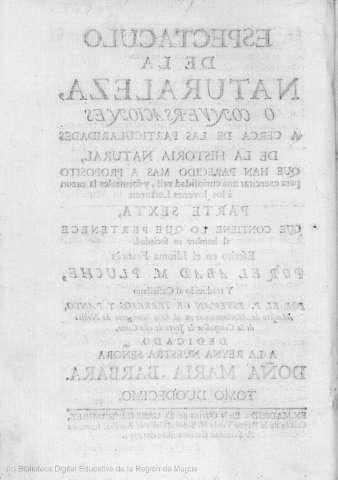 ESPECTACULO
DE LA
NATURALEZA,
O CONVERSACIONES
A CERCA DE LAS PARTICULARIDADES
DE LA HISTORIA NATURAL,
QUE HAN PARECIDO MAS A PROPOSITO
para excitar una curiosidad util, y formarles la razon
à los Jovenes Lectores.
PARTE SEXTA,
QUE CONTIENE LO QUE PERTENECE
al hombre en Sociedad.
Escrito en el Idioma Francès
POR EL ABAD M. PLUCHE,
Y traducido al Castellano
POR EL P. ESTEVAN DE TERREROS Y PANDO,
Maestro de Mathematicas en el Real Seminario de Nobles
de la Compañia de Jesus de esta Corte.
DEDICADO
A LA REYNA NUESTRA SEÑORA
DOÑA MARIA BARBARA.
TOMO DUODECIMO.
EN MADRID: En la Oficina de D. GABRIEL RAMIREZ,
(c) Biblioteca Digital Educativa de la Región de Murcia